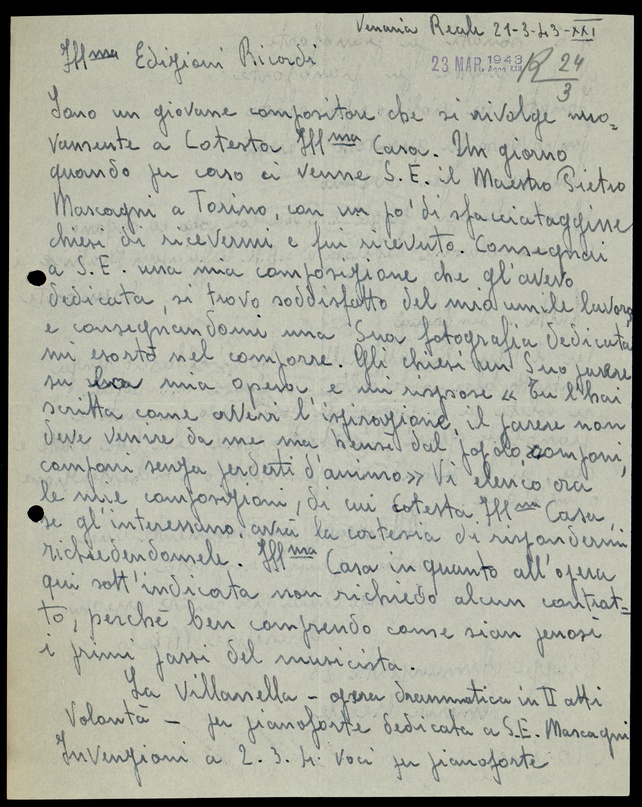 Venaria Reale 21-3-43-XXI
Illma Edizioni Ricordi
23 MAR. 1943
R 24/3
Sono un giovane compositore che si rivolge nuo=
vamente a Cotesta Illma Casa. Un giorno
quando per caso ci venne S.E. il Maestro Pietro
Mascagni a Torino, con un po' di sfacciataggine
chiesi di ricevermi e fui ricevuto. Consegnai
a S.E. una mia composizione che gl'avevo
dedicata, si trovo soddisfatto del mio umile lavoro
e consegnandomi una Sua fotografia dedicata
mi esortò nel comporre. Gli chiesi un Suo parere
su la mia opera e mi rispose « Tu l'hai
scritta come avevi l'ispirazione, il parere non
deve venire da me ma bensì dal popolo, componi,
componi senza perderti d'animo» Vi elenco ora
le mie composizioni, di cui Cotesta Illma Casa,
se gl'interessano, avrà la cortesia di rispondermi
richiedendomele. Illma Casa in quanto all'opera
qui sott'indicata non richiedo alcun contrat=
to, perchè ben comprendo come sian penosi
i primi passi del musicista.
La Villanella - opera drammatica in II atti
Volontà - per pianoforte dedicata a S.E. Mascagni
Invenzioni a 2. 3. 4. voci per pianoforte